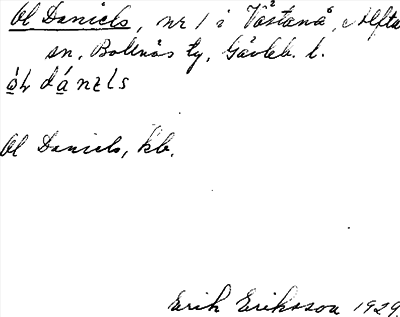 Ol Daniels, nr 1 i Västanå, Alfta
sn, Bollnäs tg, Gävleb. l.
Ol Daniels, kb.
Erik Eriksson 1929.